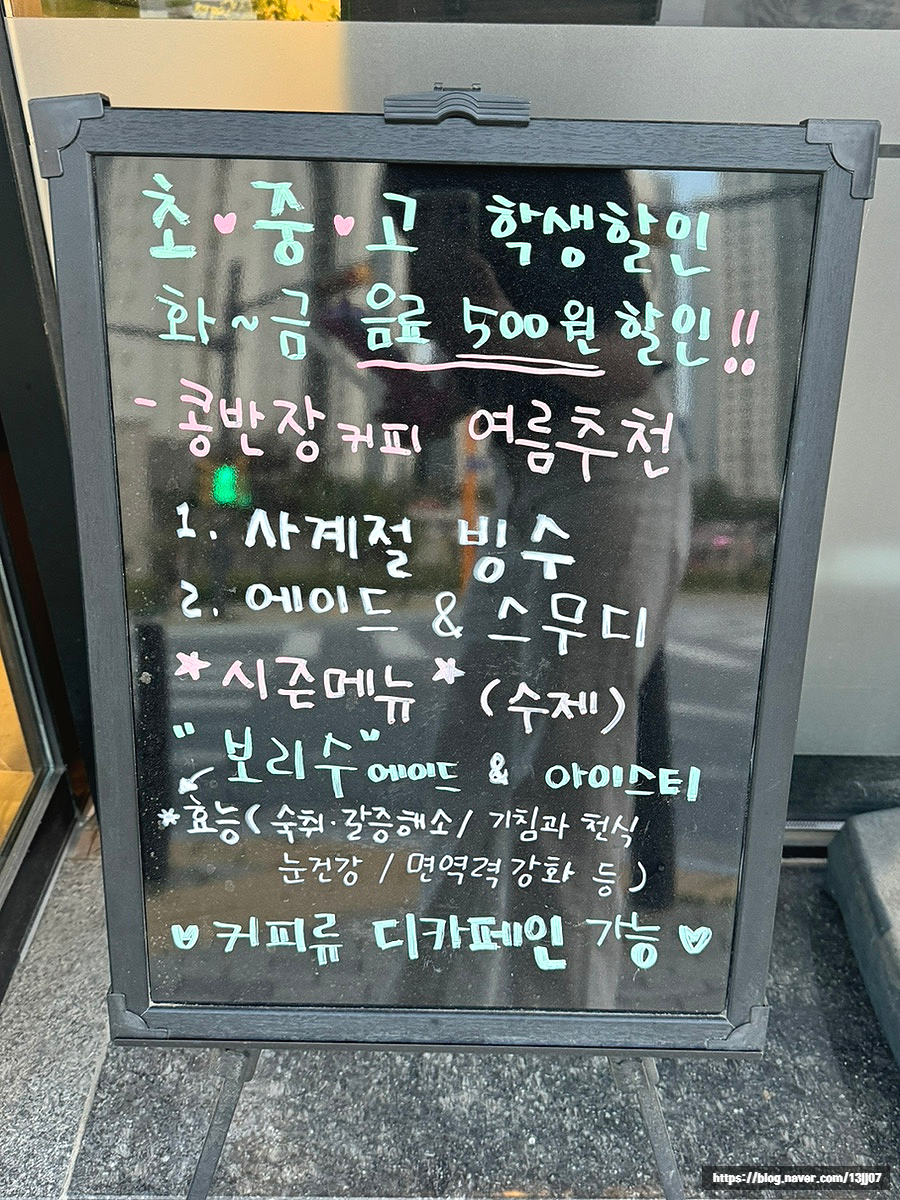 초♥중♥고 학생할인
화~금 음료 500원 할인!!
- 콩반장커피 여름추천
1. 사계절 빙수
2. 에이드 & 스무디
*시즌메뉴* (수제)
"보리수"에이드 & 아이스티
*효능(숙취·갈증해소/ 기침과 천식
눈건강 / 면역력강화 등)
♥커피류 디카페인 가능♥
https://blog.naver.com/13jj07